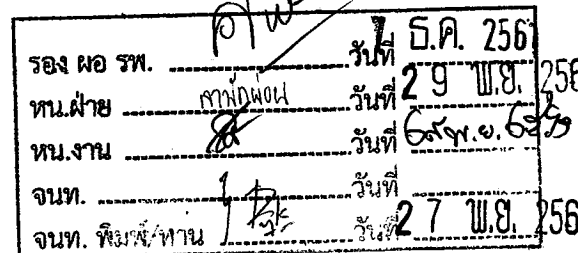 รอง ผอ รพ. วันที่ ธ.ค. 256
หน.ฝ่าย ลาพักผ่อน วันที่ 29 พ.ย. 256
หน.งาน วันที่ พ.ย.
จนท. วันที่
จนท. พิมพ์/ทาน วันที่ 27 พ.ย. 256